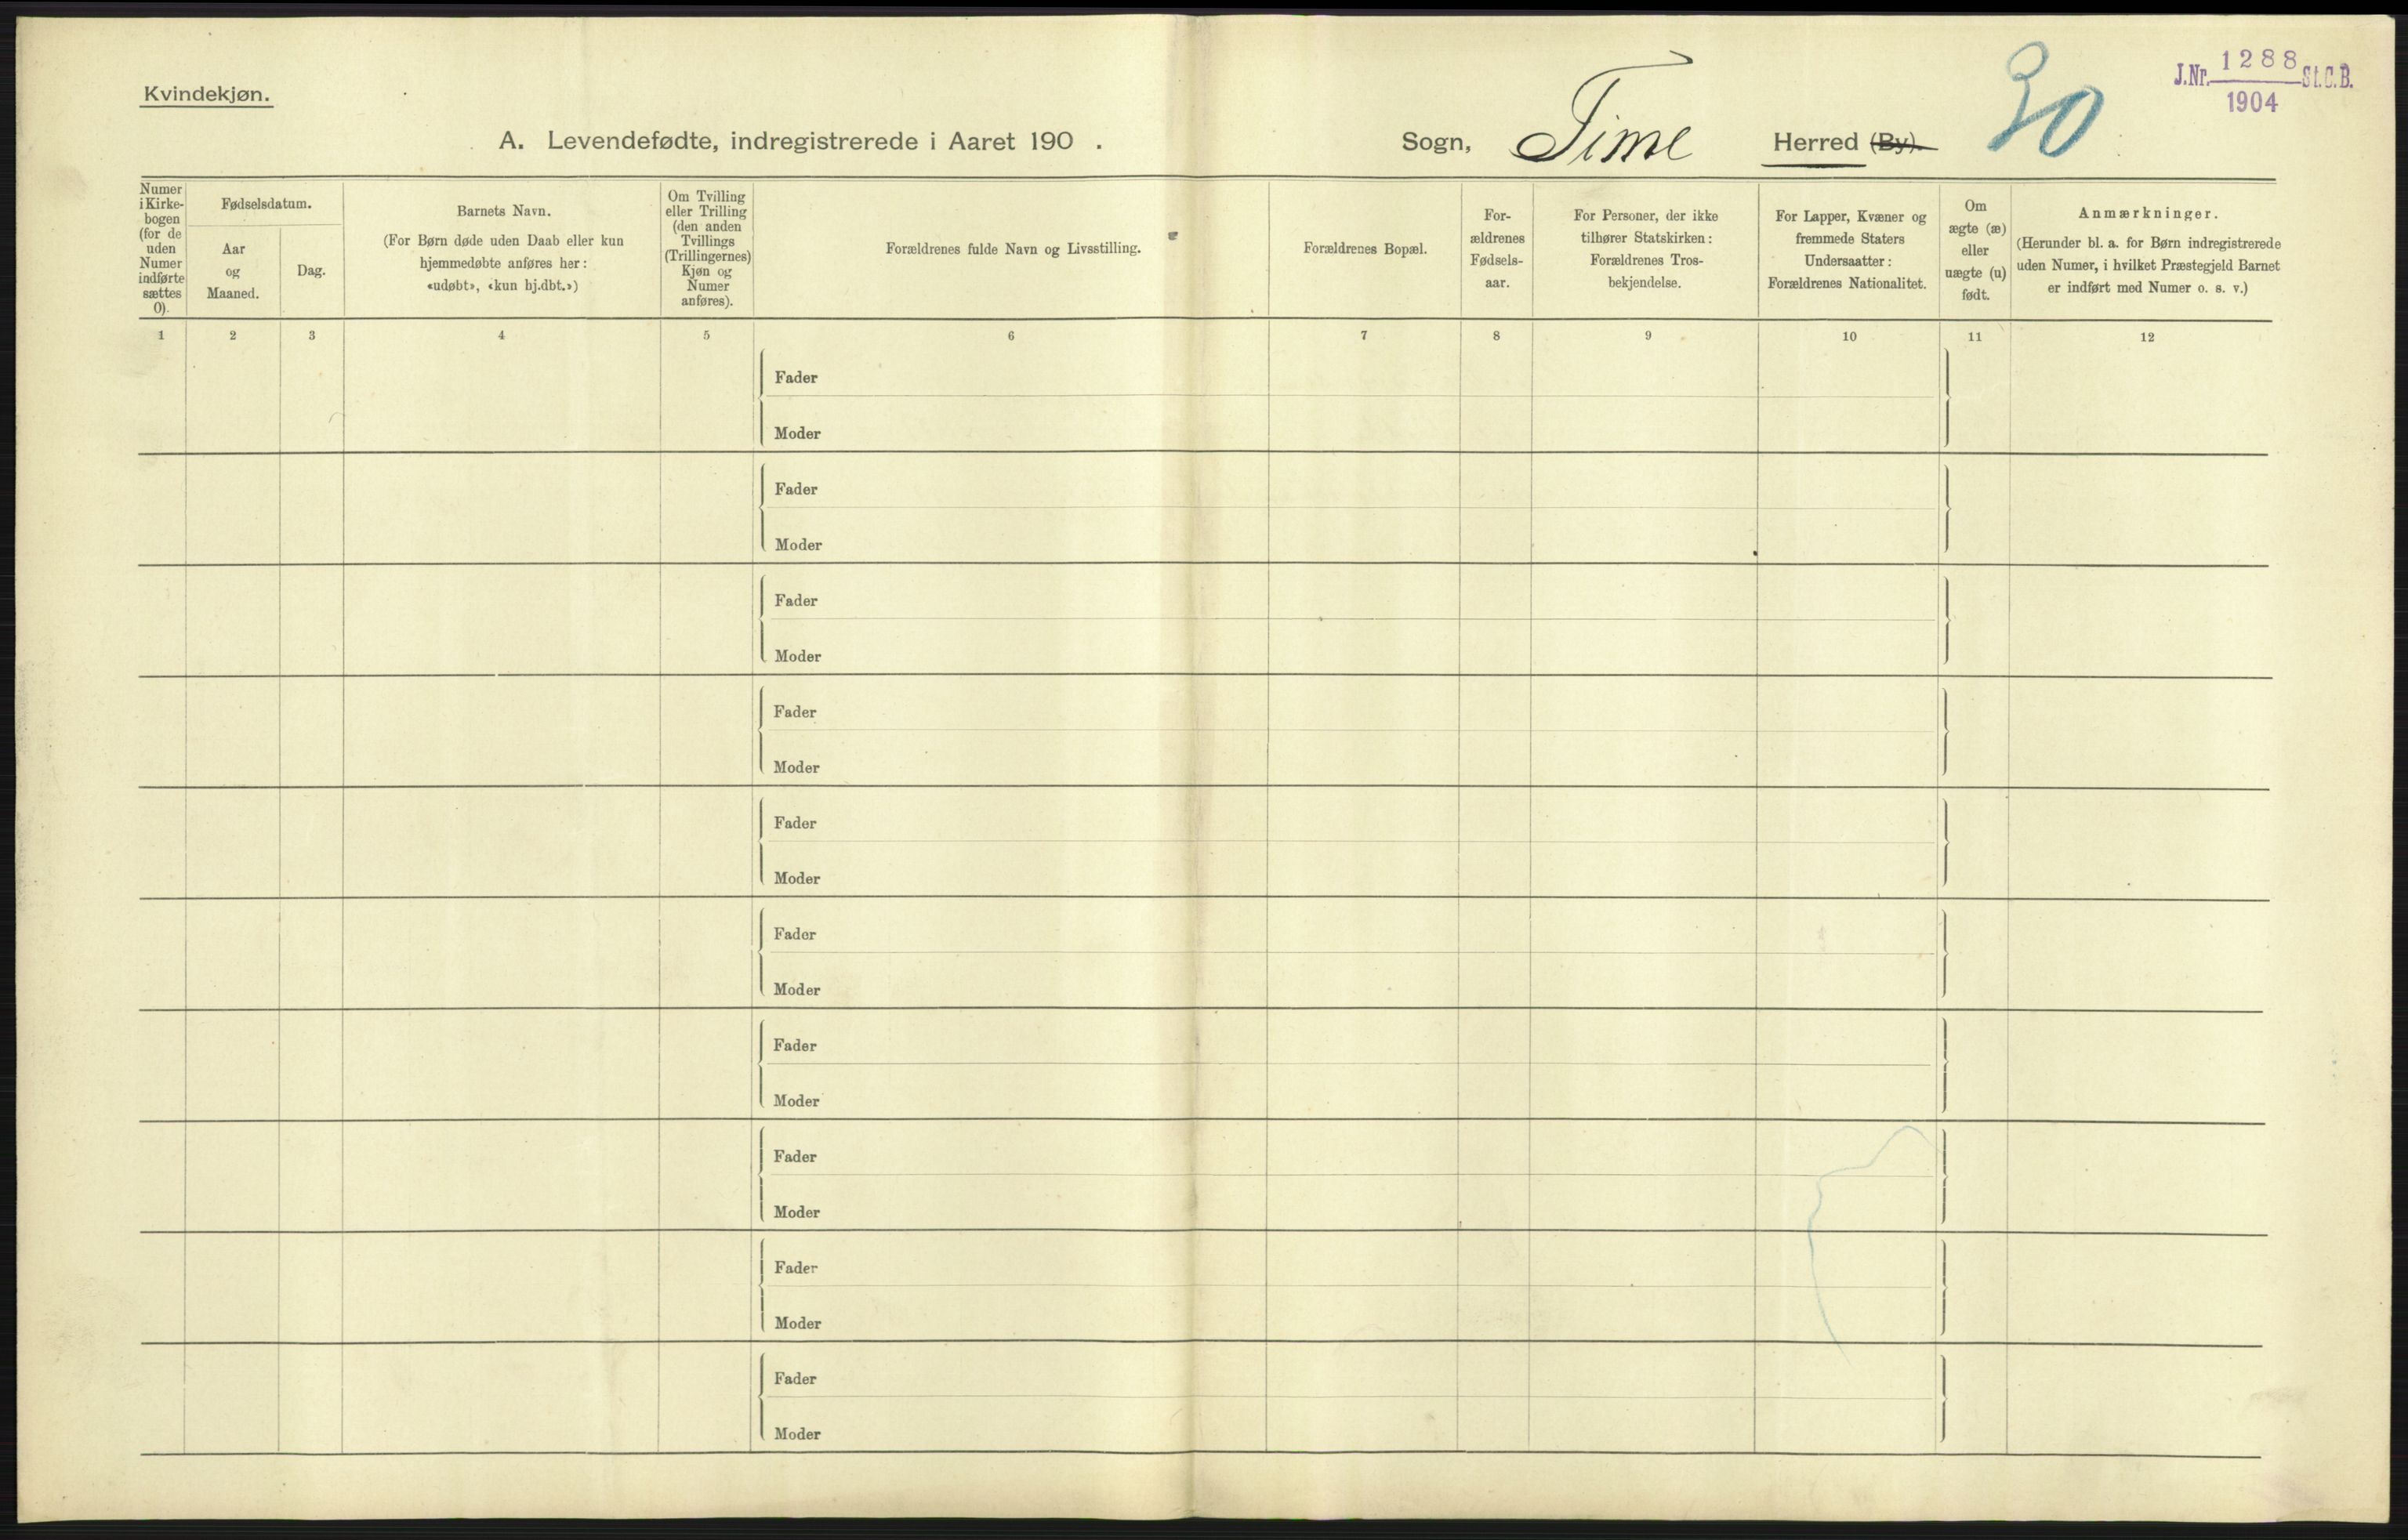 Kvindekjøn.
J.Nr. 1288 St.C.B.
1904
30
A. Levendefødte, indregistrerede i Aaret 190 . Sogn, Time Herred (By).
Numer
i Kirke-
bogen
(for de
uden
Numer
indførte
sættes
0).
Fødselsdatum.
Aar
og
Maaned.
Dag.
Barnets Navn.
(For Børn døde uden Daab eller kun
hjemmedøbte anføres her:
«udøbt», «kun hj.dbt.»)
Om Tvilling
eller Trilling
(den anden
Tvillings
(Trillingernes)
Kjøn og
Numer
anføres).
Forældrenes fulde Navn og Livsstilling.
Forældrenes Bopæl.
For-
ældrenes
Fødsels-
aar.
For Personer, der ikke
tilhører Statskirken:
Forældrenes Tros-
bekjendelse.
For Lapper, Kvæner og
fremmede Staters
Undersaatter:
Forældrenes Nationalitet.
Om
ægte (æ)
eller
uægte (u)
født.
Anmærkninger.
(Herunder bl. a. for Børn indregistrerede
uden Numer, i hvilket Præstegjeld Barnet
er indført med Numer o. s. v.)
1 2 3 4 5 6 7 8 9 10 11 12
Fader
Moder
Fader
Moder
Fader
Moder
Fader
Moder
Fader
Moder
Fader
Moder
Fader
Moder
Fader
Moder
Fader
Moder
Fader
Moder